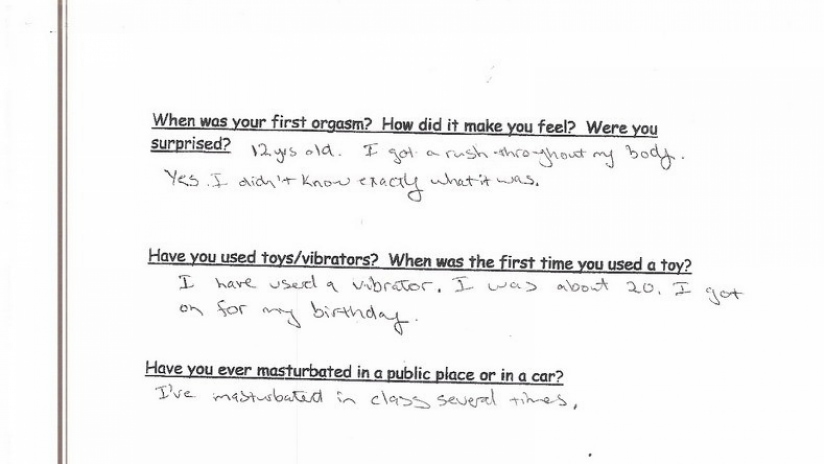 When was your first orgasm? How did it make you feel? Were you
surprised? 12 yrs old. I got a rush throughout my body.
Yes. I didn't know exactly what it was.
Have you used toys/vibrators? When was the first time you used a toy?
I have used a vibrator. I was about 20. I got
on for my birthday.
Have you ever masturbated in a public place or in a car?
I've masturbated in class several times.